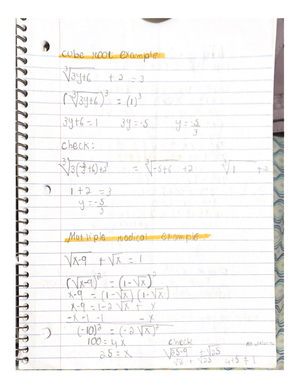 cube root example
∛3y+6 + 2 = 3
(∛3y+6)³ = (1)³
3y+6 = 1 3y = -5 y = -5/3
check:
= ∛-5+6 +2 ∛1
1 + 2 = 3
y = -5/3
Multiple radical example
√x-9 + √x = 1
(√x-9)² = (1-√x)²
x-9 = (1-√x)(1-√x)
x-9 = 1-2√x + x
-x -1 -1 -x
(-10)² = (-2√x)²
100 = 4x check
25 = x √25-9 + √25
4+5 ≠ 1